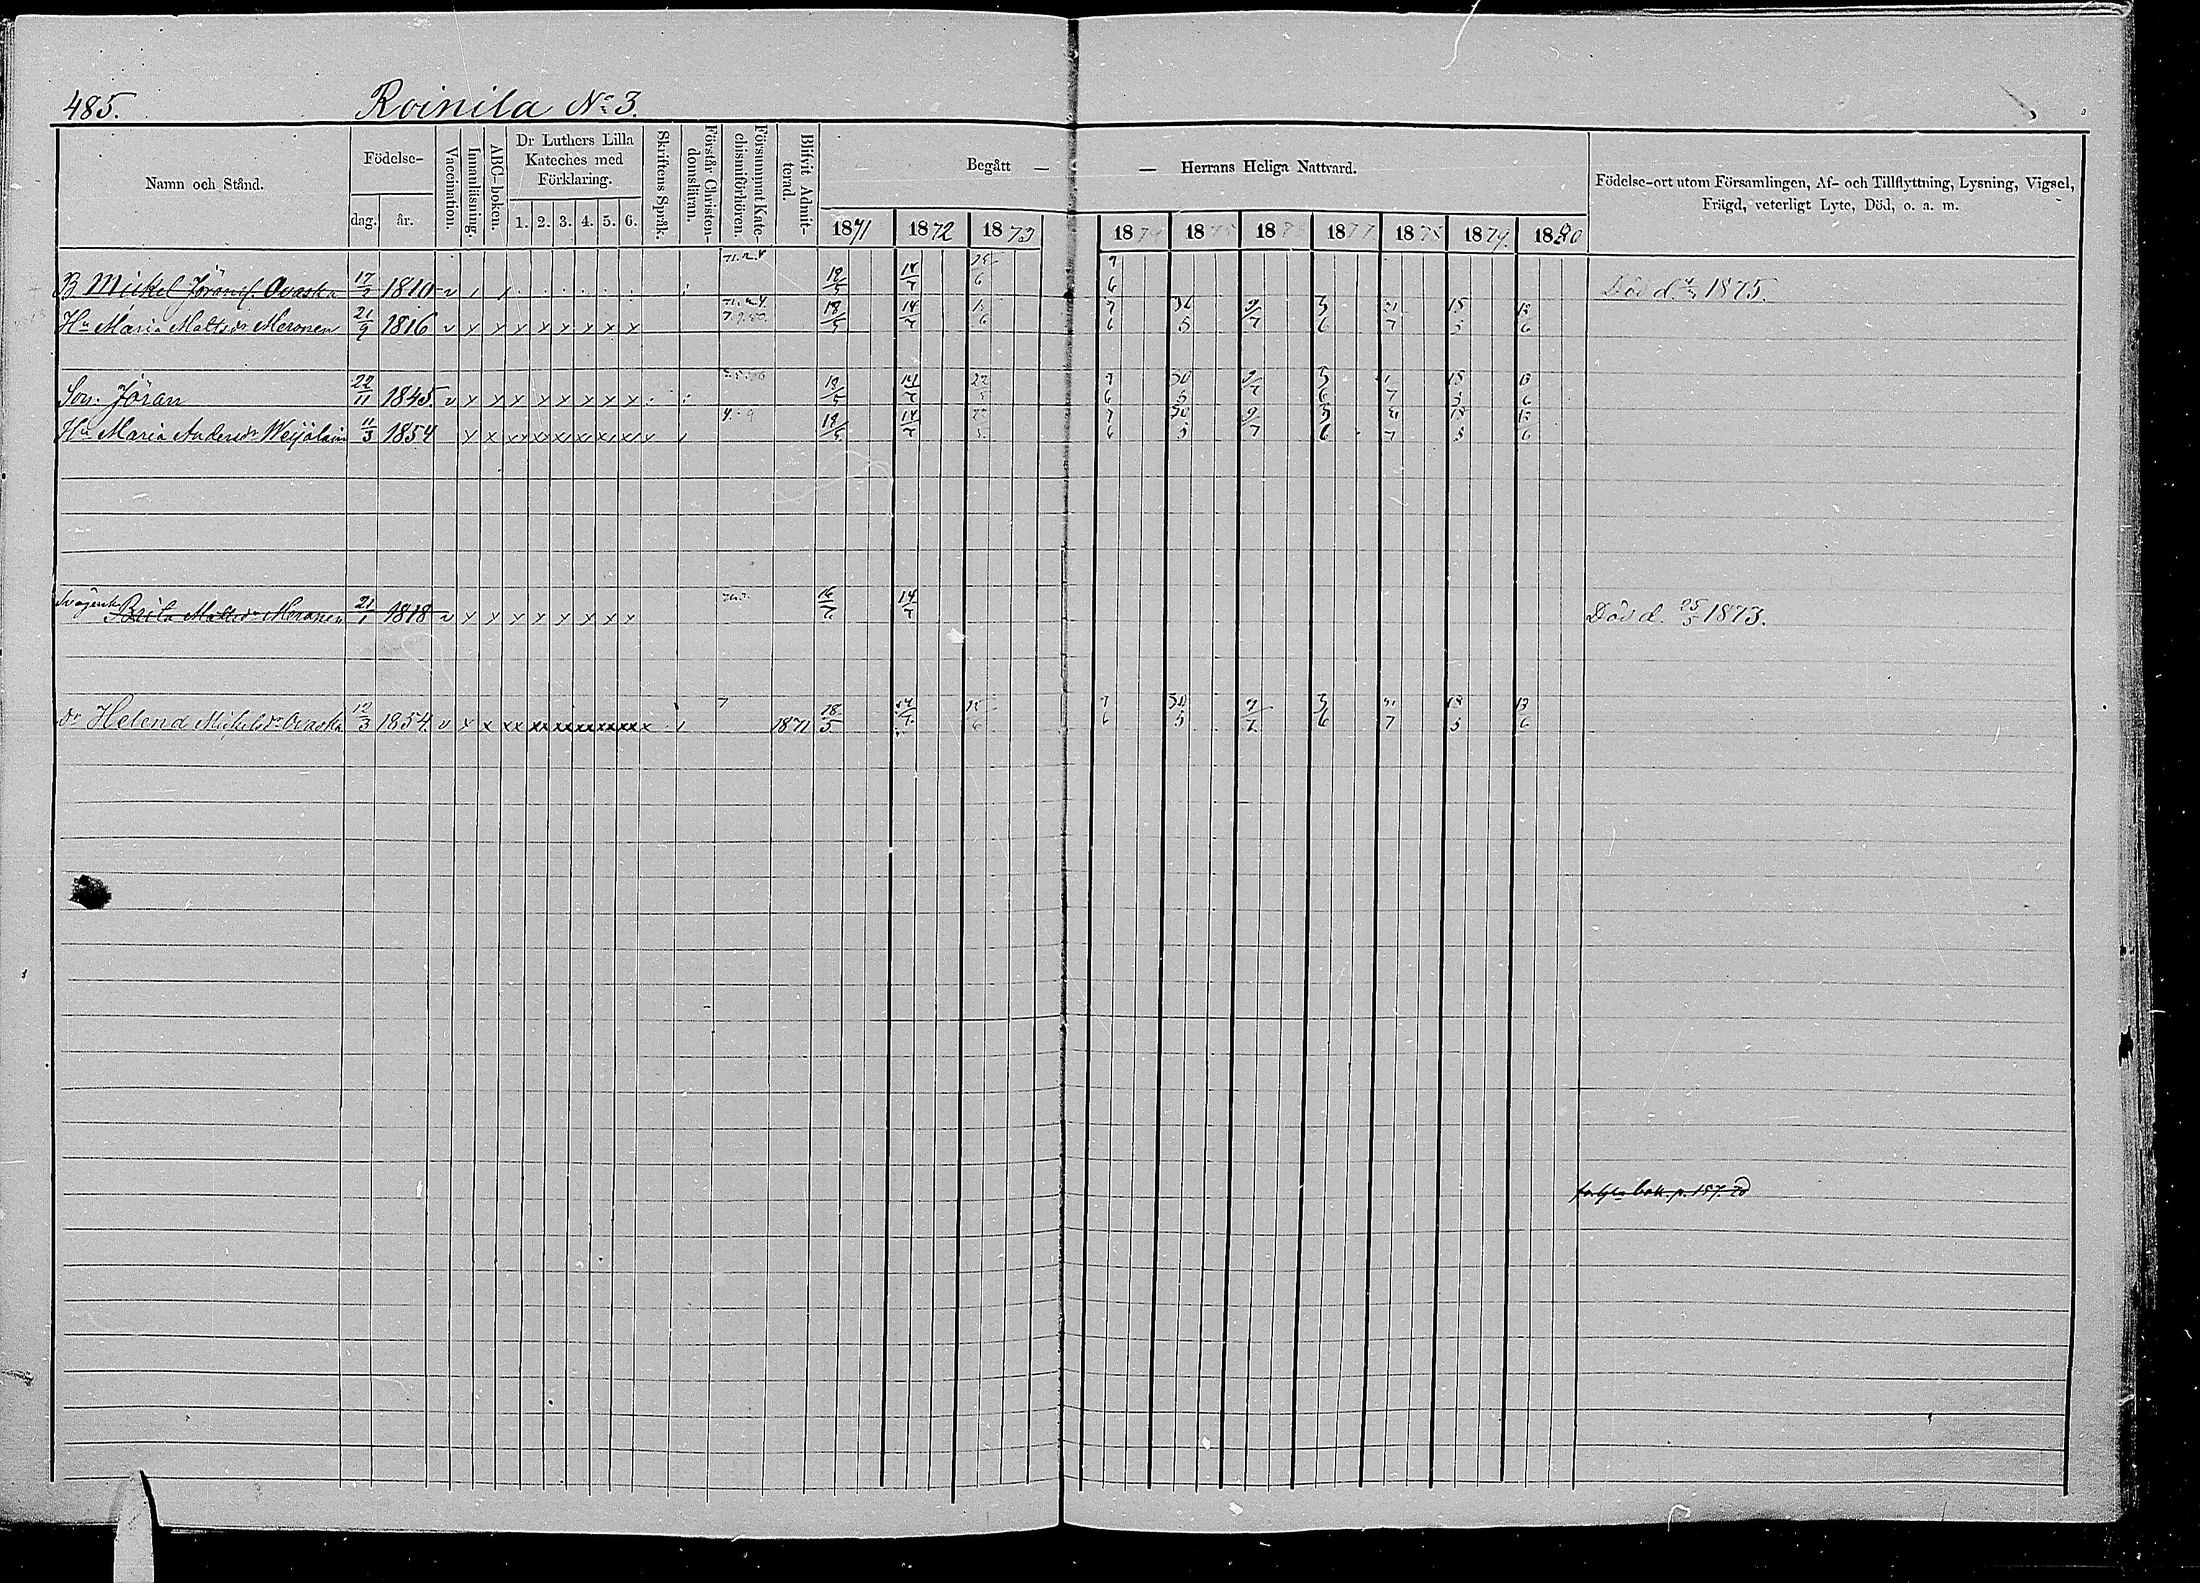 485. Roinila No 3.
Namn och Stånd.
Födelse-
dag. år.
Vaccination.
Innanläsning.
ABC-boken.
Dr Luthers Lilla
Kateches med
Förklaring.
1. 2. 3. 4. 5. 6.
Skriftens Språk.
Förstår Christen-
domsläran.
Försummat Kate-
chismiförhören.
Blifvit Admit-
terad.
Begått — — Herrans Heliga Nattvard.
1871 1872 1873 1874 1875 1876 1877 1878 1879 1880
Födelse-ort utom Församlingen, Af- och Tillflyttning, Lysning, Vigsel,
Frägd, veterligt Lyte, Död, o. a. m.
B. Mickel Göransf. Ovaska 1810 v 18/5 14/7 7/6 Död d. 1875.
Hu Maria Mattsdr Meronen 21/9 1816 v x x x x x x x x 18/5 14/7 7/6 30/5 9/7 3/6 21/7 18/5 13/6
Son. Jöran 22/11 1845. v x x x x x x x x 18/5 14/7 7/6 30/5 9/7 3/6 18/5 13/6
Hu Maria Andersdr 11/3 1854 x x xx xx xx xx xx xx x 18/5 14/7 7/6 30/5 9/7 3/6 21/7 18/5 13/6
Brita Mattsdr Meronen 21/1 1818 v x x x x x x x x 14/7 Död d. 25/5 1873.
dr Helena Michelsdr Ovaska 12/3 1854. v x x xx xx xx xx xx xx x 1871 28/5 7/6 30/5 9/7 3/6 21/7 18/5 13/6
bok. p. 157.